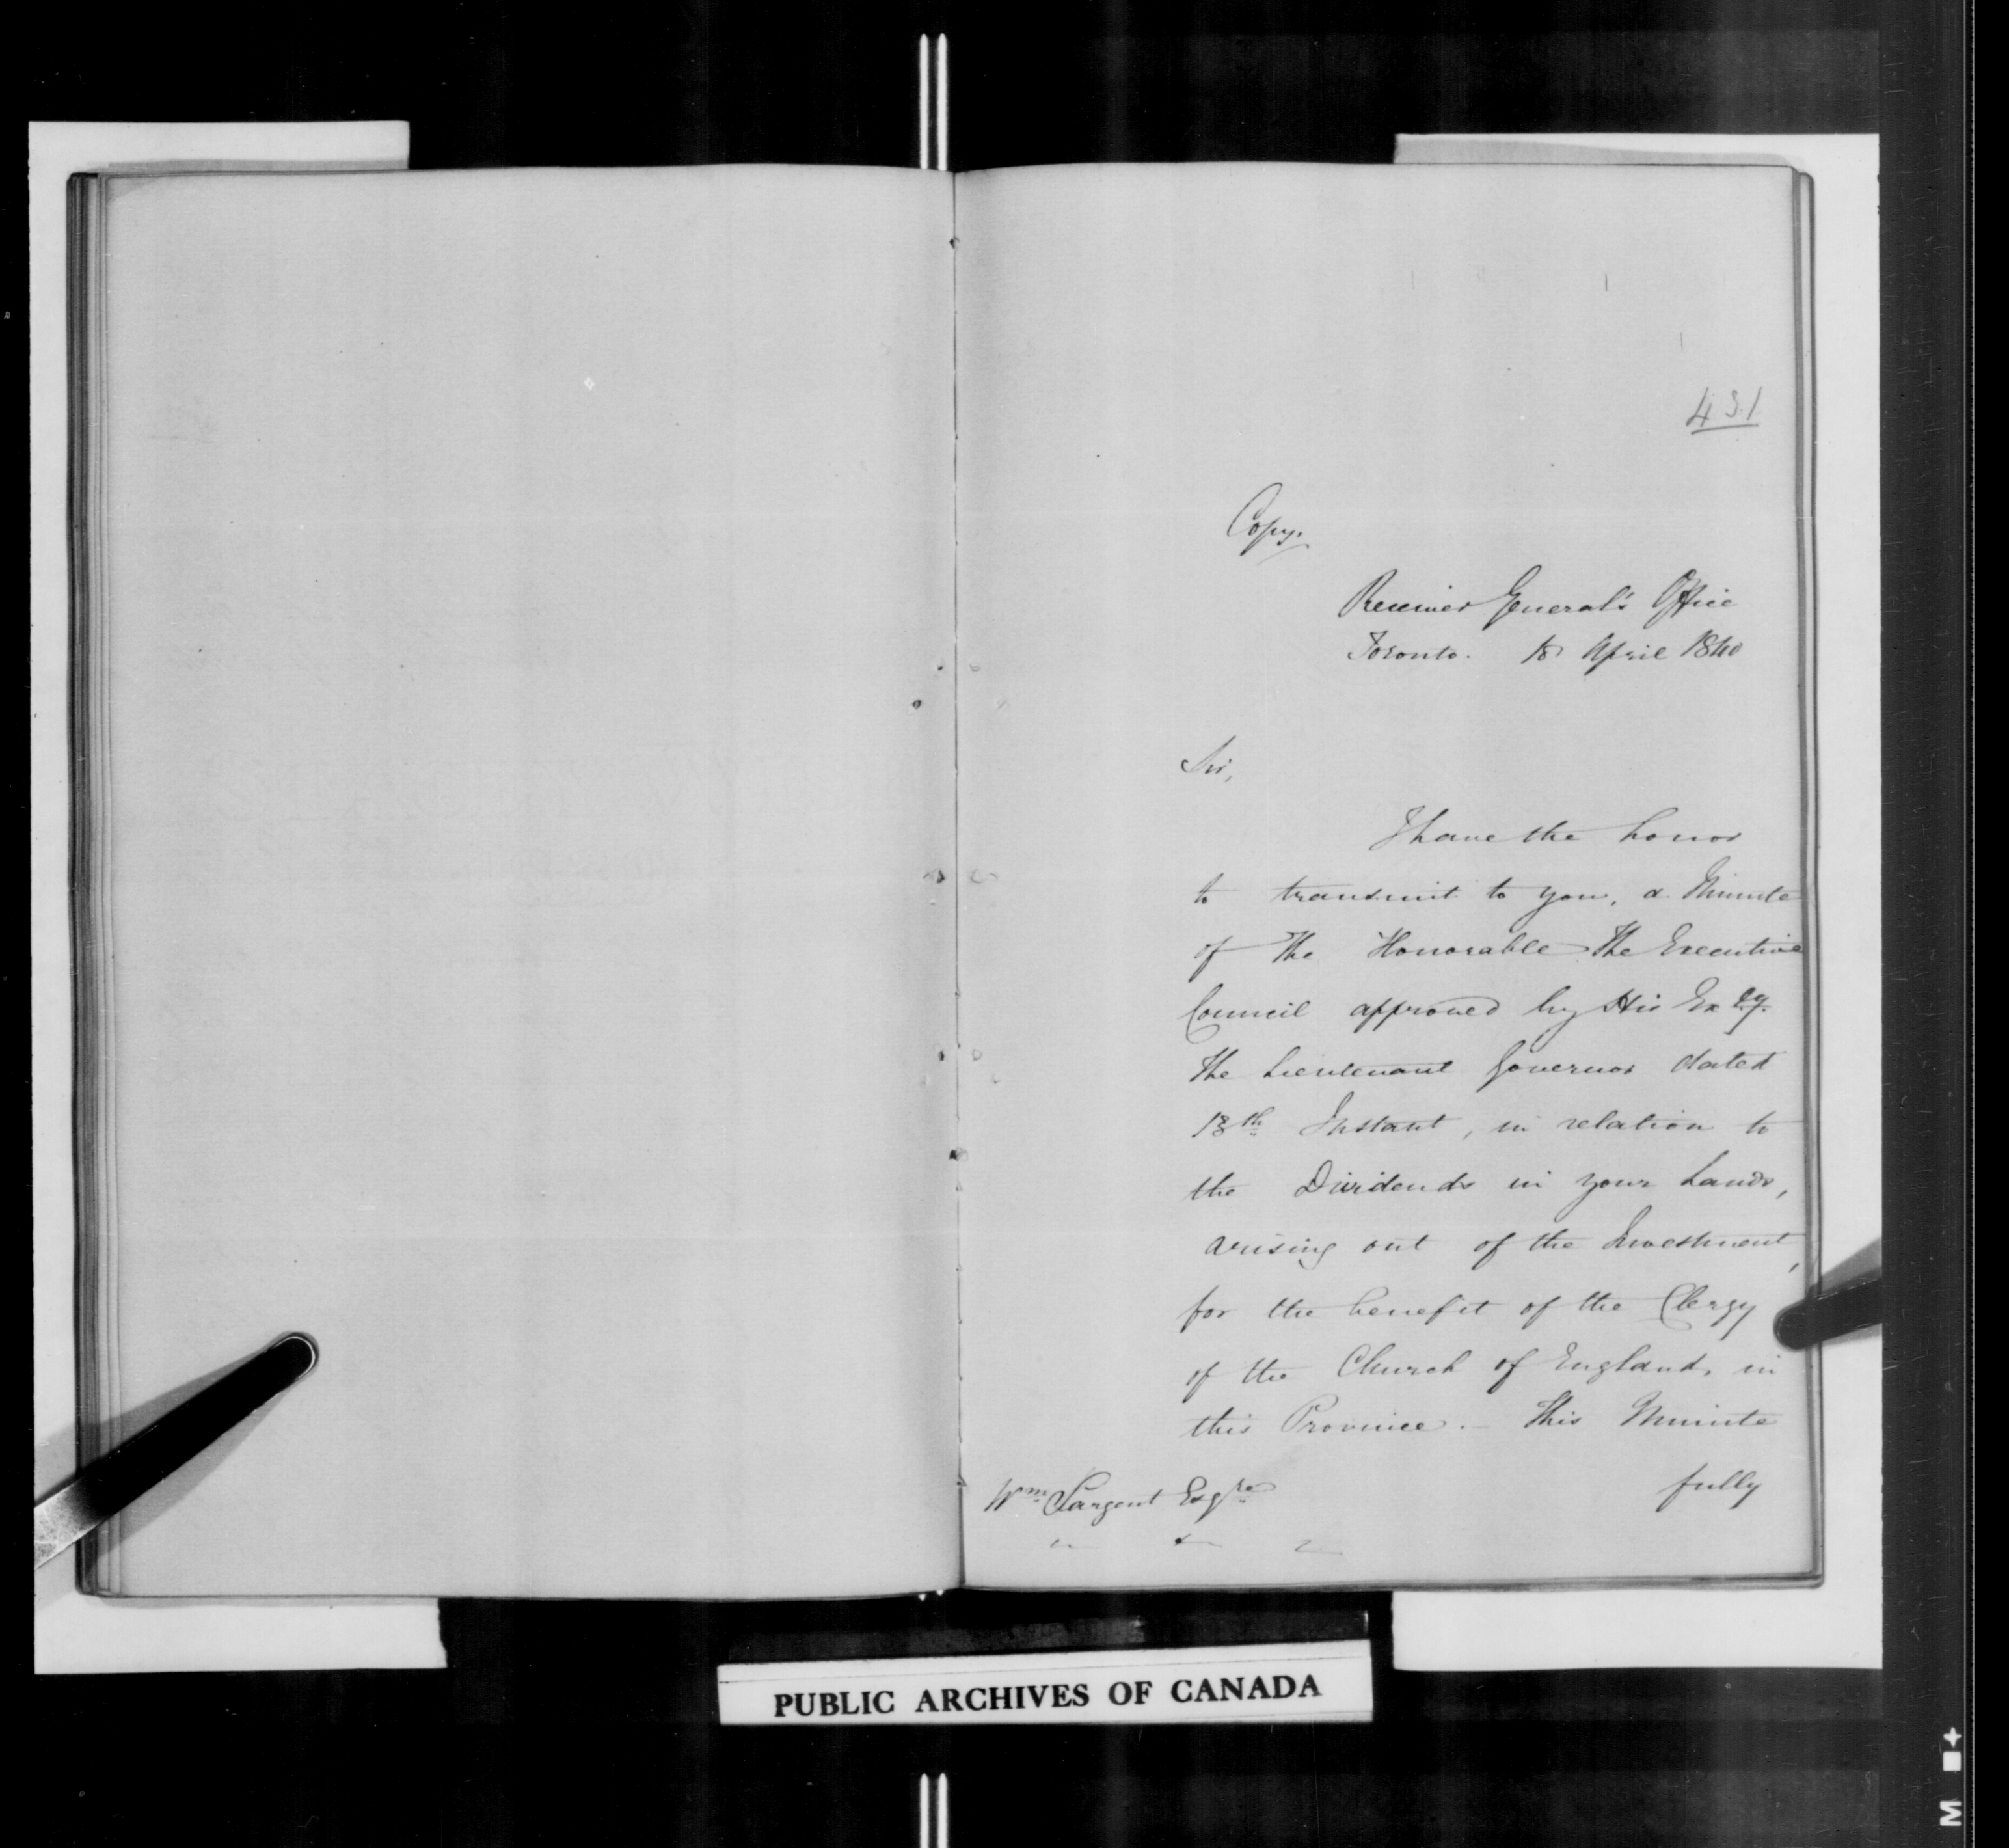 431
Copy,
Receiver General's Office
Toronto. 18 April 1840
Sir,
I have the honor
to transmit to you, a Minute
of The Honorable The Executive
Council approved by His Excy.
The Lieutenant Governor dated
13th Instant, in relation to
the Dividends in your hands,
arising out of the Investment,
for the benefit of the Clergy
of the Church of England, in
this Province. — This Minute
fully
Wm Sargent Esqre
PUBLIC ARCHIVES OF CANADA
M